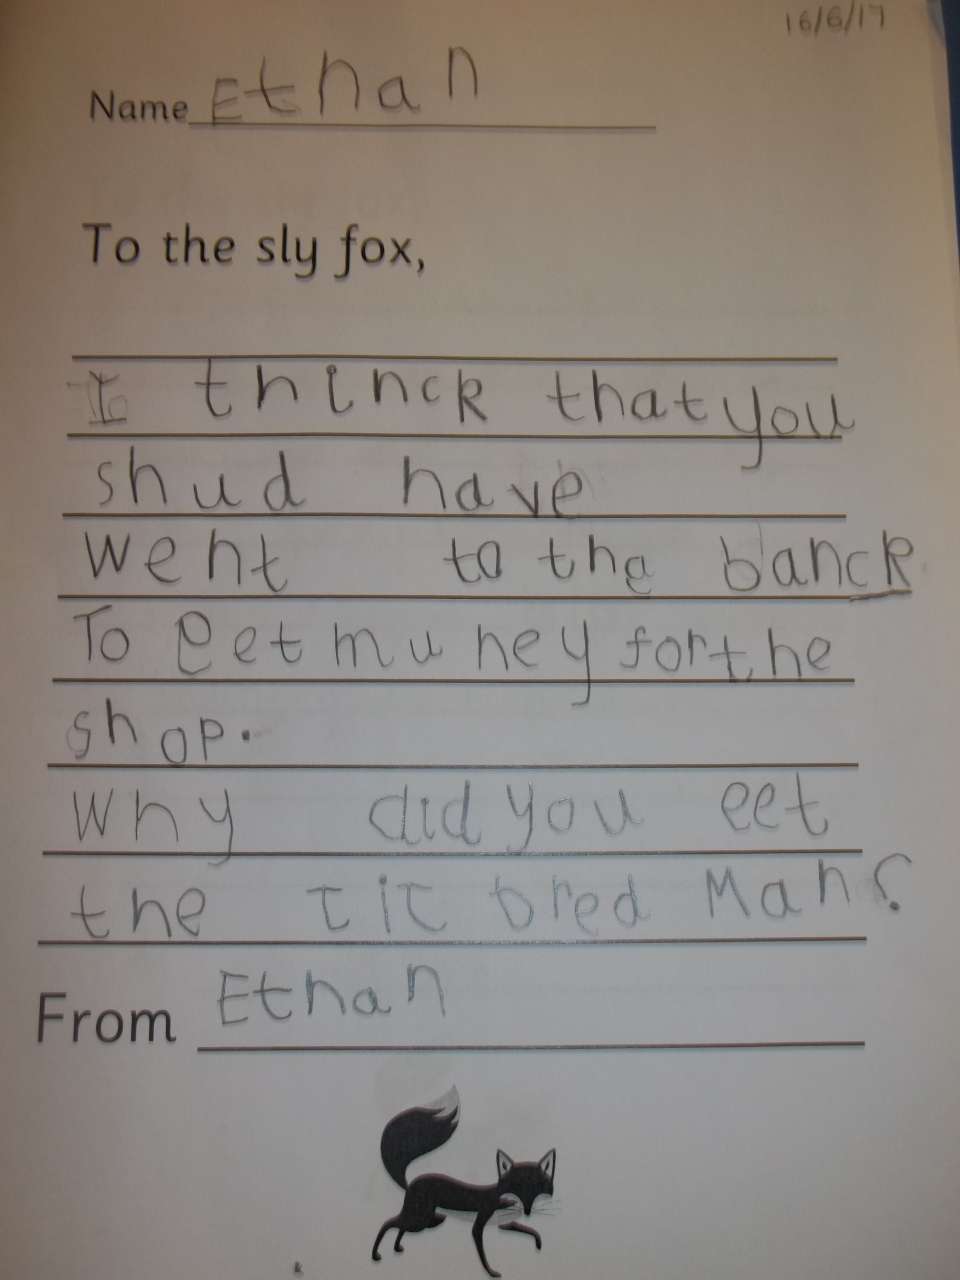 16/6/17
Name Ethan
To the sly fox,
I thinck that you
shud have
went to the banck
To get muney for the
shop.
Why did you eet
the tit bred Man?
From Ethan